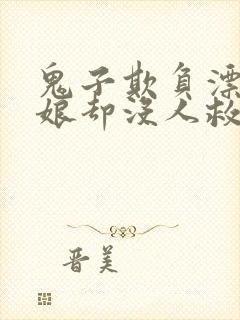 鬼子欺负漂
娘却没人救
晋美